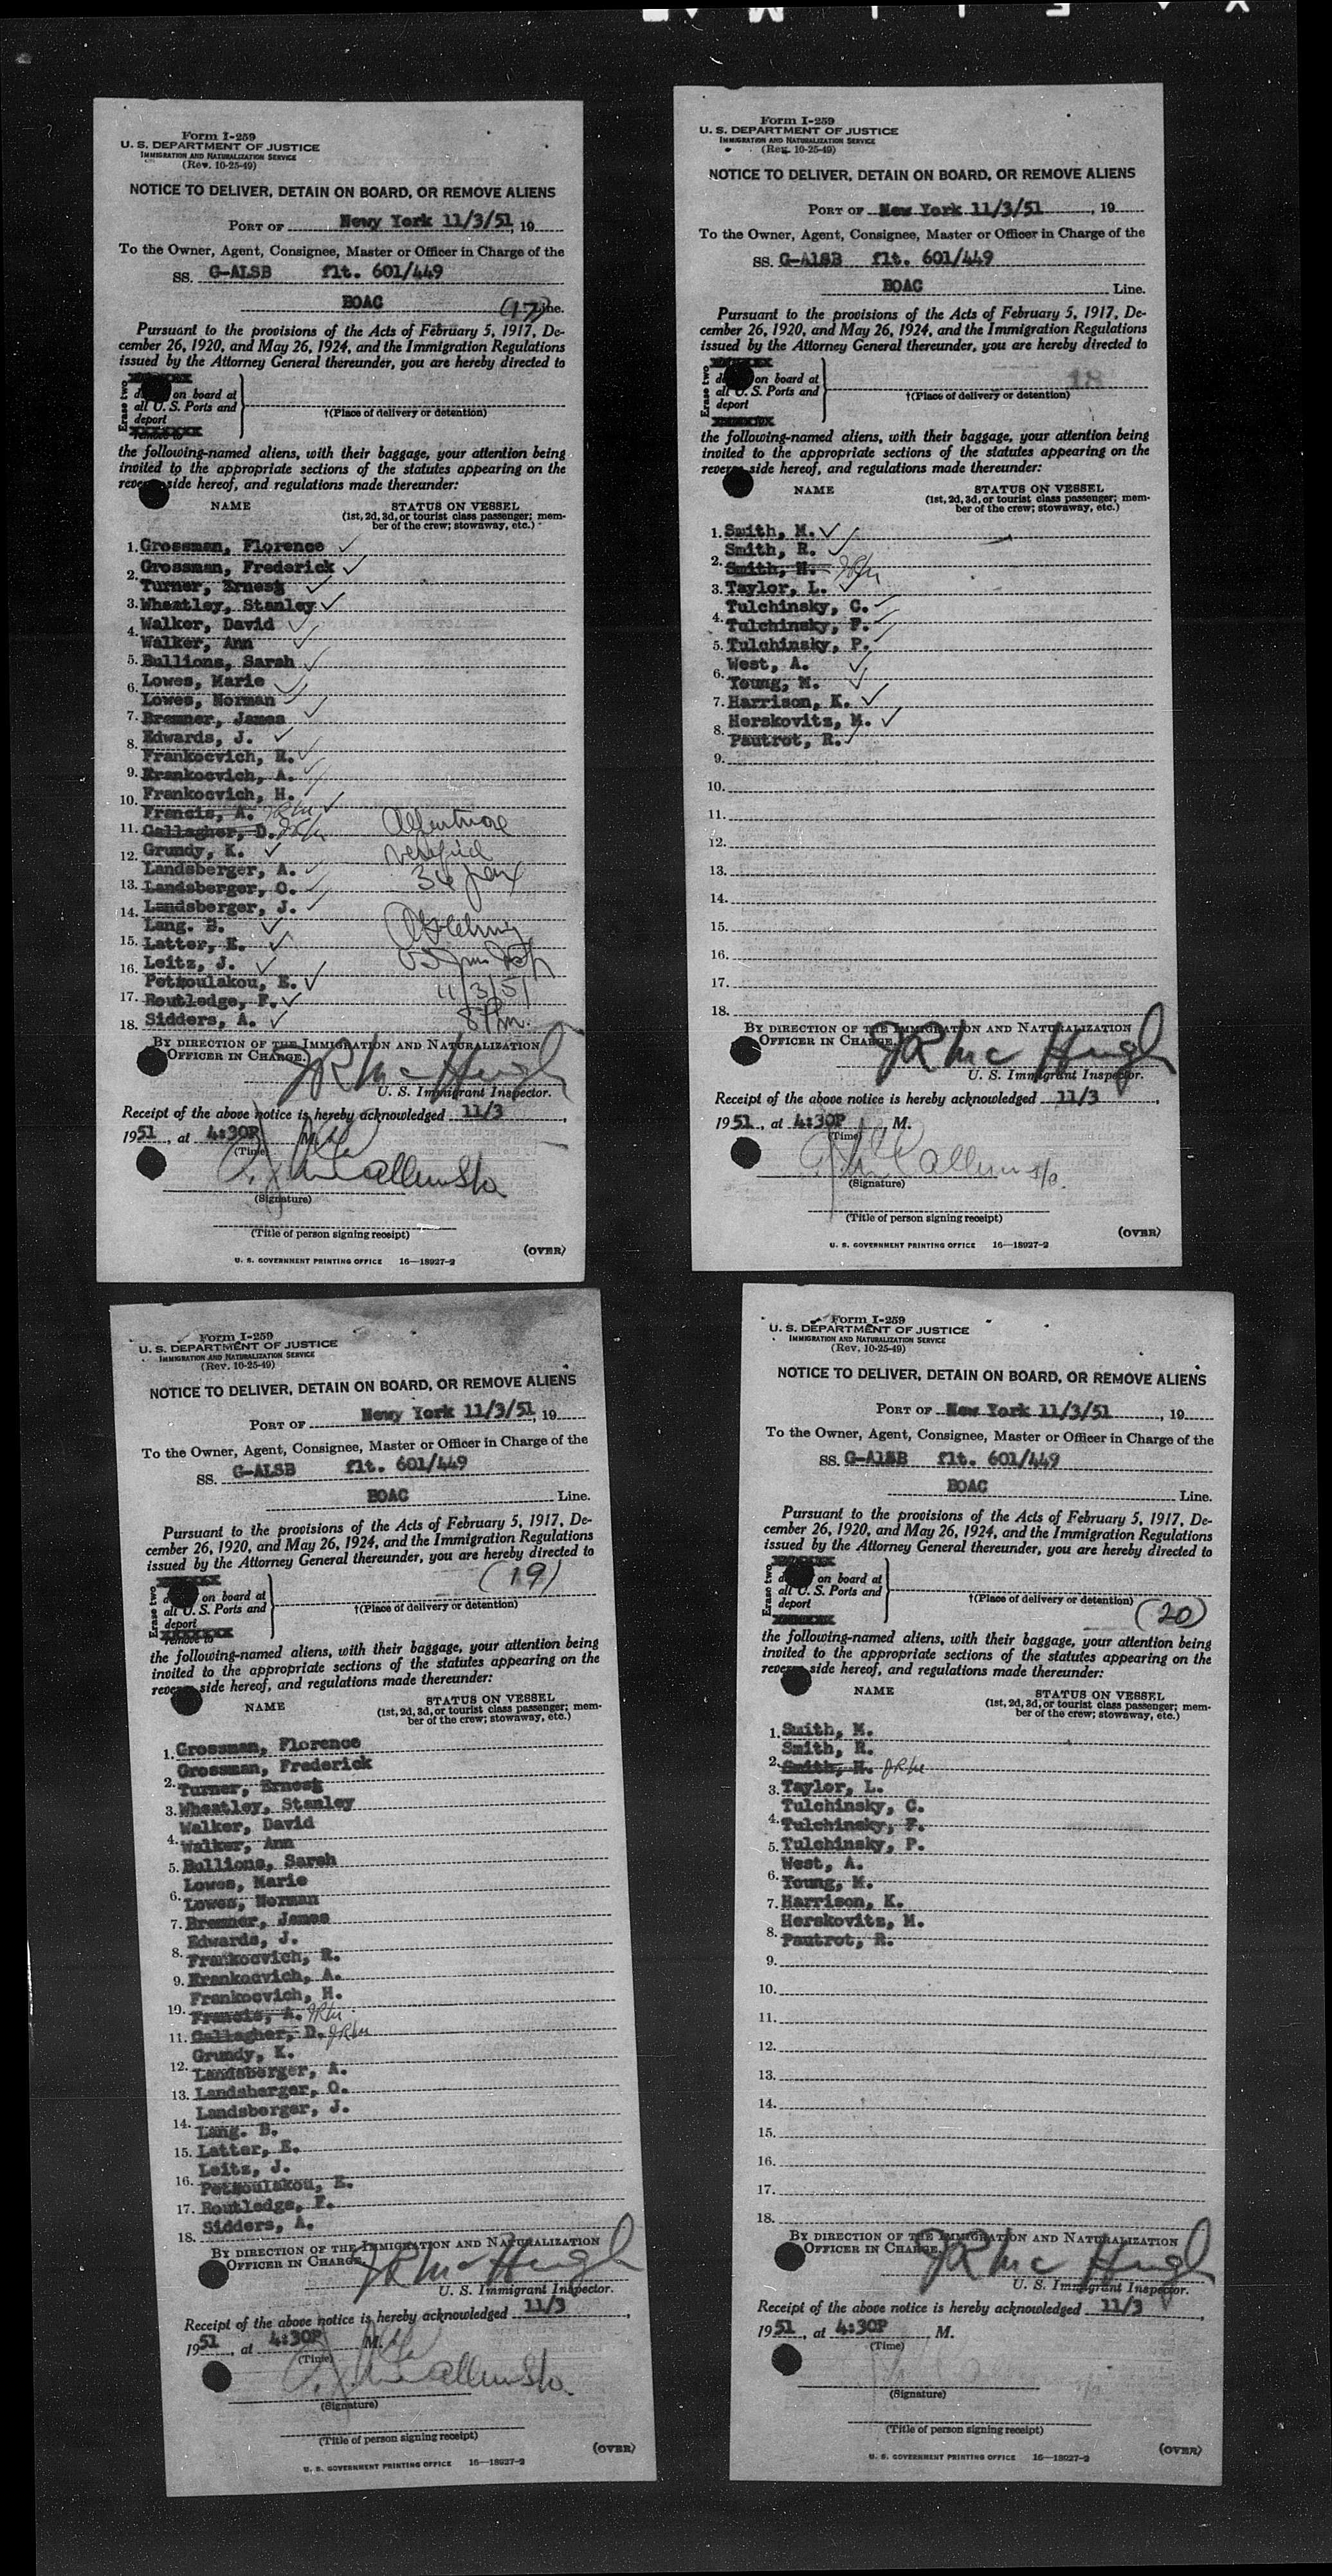 Form I-259
U. S. DEPARTMENT OF JUSTICE
IMMIGRATION AND NATURALIZATION SERVICE
(Rev. 10-25-49)
NOTICE TO DELIVER, DETAIN ON BOARD, OR REMOVE ALIENS
PORT OF Newy York 11/3/51, 19
To the Owner, Agent, Consignee, Master or Officer in Charge of the
SS. G-ALSB flt. 601/449
BOAC (17) Line.
Pursuant to the provisions of the Acts of February 5, 1917, De-
cember 26, 1920, and May 26, 1924, and the Immigration Regulations
issued by the Attorney General thereunder, you are hereby directed to
Erase two
on board at
all U. S. Ports and
deport
remove to
†(Place of delivery or detention)
the following-named aliens, with their baggage, your attention being
invited to the appropriate sections of the statutes appearing on the
reverse side hereof, and regulations made thereunder:
NAME STATUS ON VESSEL
(1st, 2d, 3d, or tourist class passenger; mem-
ber of the crew; stowaway, etc.)
1. Grossman, Florence ✓
Grossman, Frederick ✓
2. Turner, Ernest ✓
3. Wheatley, Stanley ✓
Walker, David ✓
4. Walker, Ann ✓
5. Bullions, Sarah ✓
Lowes, Marie ✓
6. Lowes, Norman ✓
7. Bremner, James ✓
Edwards, J. ✓
8. Frankocvich, R. ✓
9. Frankocvich, A. ✓
Frankocvich, H. ✓
10. Francis, A. JRMc ✓
11. Gallagher, D. JRMc
Grundy, K. ✓
12. Landsberger, A. ✓
13. Landsberger, O. ✓
Landsberger, J. ✓
14. Lang. B. ✓
15. Latter, E. ✓
Leitz, J. ✓
16. Petroulakou, E. ✓
17. Routledge, F. ✓
18. Sidders, A. ✓
verified
34 pax
11/3/51
8 Pm.
BY DIRECTION OF THE IMMIGRATION AND NATURALIZATION
OFFICER IN CHARGE.
JR McHugh
U. S. Immigrant Inspector.
Receipt of the above notice is hereby acknowledged 11/3,
1951, at 4:30P M.
(Time)
(Signature)
(Title of person signing receipt)
(OVER)
U. S. GOVERNMENT PRINTING OFFICE 16—18927-2
Form I-259
U. S. DEPARTMENT OF JUSTICE
IMMIGRATION AND NATURALIZATION SERVICE
(Rev. 10-25-49)
NOTICE TO DELIVER, DETAIN ON BOARD, OR REMOVE ALIENS
PORT OF New York 11/3/51, 19
To the Owner, Agent, Consignee, Master or Officer in Charge of the
SS. G-AlSB flt. 601/449
BOAC Line.
Pursuant to the provisions of the Acts of February 5, 1917, De-
cember 26, 1920, and May 26, 1924, and the Immigration Regulations
issued by the Attorney General thereunder, you are hereby directed to
Erase two
on board at
all U. S. Ports and
deport
18
†(Place of delivery or detention)
the following-named aliens, with their baggage, your attention being
invited to the appropriate sections of the statutes appearing on the
reverse side hereof, and regulations made thereunder:
NAME STATUS ON VESSEL
(1st, 2d, 3d, or tourist class passenger; mem-
ber of the crew; stowaway, etc.)
1. Smith, M. ✓
Smith, R. ✓
2. Smith, H. JRMc
3. Taylor, L. ✓
Tulchinsky, C. ✓
4. Tulchinsky, F. ✓
5. Tulchinsky, P. ✓
West, A. ✓
6. Young, M. ✓
7. Harrison, K. ✓
Herskovits, M. ✓
8. Pautrot, R. ✓
9.
10.
11.
12.
13.
14.
15.
16.
17.
18.
BY DIRECTION OF THE IMMIGRATION AND NATURALIZATION
OFFICER IN CHARGE.
JR McHugh
U. S. Immigrant Inspector.
Receipt of the above notice is hereby acknowledged 11/3,
1951, at 4:30P M.
(Time)
(Signature)
(Title of person signing receipt)
(OVER)
U. S. GOVERNMENT PRINTING OFFICE 16—18927-2
Form I-259
U. S. DEPARTMENT OF JUSTICE
IMMIGRATION AND NATURALIZATION SERVICE
(Rev. 10-25-49)
NOTICE TO DELIVER, DETAIN ON BOARD, OR REMOVE ALIENS
PORT OF Newy York 11/3/51, 19
To the Owner, Agent, Consignee, Master or Officer in Charge of the
SS. G-ALSB flt. 601/449
BOAC Line.
Pursuant to the provisions of the Acts of February 5, 1917, De-
cember 26, 1920, and May 26, 1924, and the Immigration Regulations
issued by the Attorney General thereunder, you are hereby directed to
(19)
Erase two
on board at
all U. S. Ports and
deport
remove to
†(Place of delivery or detention)
the following-named aliens, with their baggage, your attention being
invited to the appropriate sections of the statutes appearing on the
reverse side hereof, and regulations made thereunder:
NAME STATUS ON VESSEL
(1st, 2d, 3d, or tourist class passenger; mem-
ber of the crew; stowaway, etc.)
1. Grossman, Florence
Grossman, Frederick
2. Turner, Ernest
3. Wheatley, Stanley
Walker, David
4. Walker, Ann
5. Bullions, Sarah
Lowes, Marie
6. Lowes, Norman
7. Bremner, James
Edwards, J.
8. Frankocvich, R.
9. Frankocvich, A.
Frankocvich, H.
10. Francis, A. JRMc
11. Gallagher, D. JRMc
Grundy, K.
12. Landsberger, A.
13. Landsberger, O.
Landsberger, J.
14. Lang. B.
15. Latter, E.
Leitz, J.
16. Petroulakou, E.
17. Routledge, F.
18. Sidders, A.
BY DIRECTION OF THE IMMIGRATION AND NATURALIZATION
OFFICER IN CHARGE.
JR McHugh
U. S. Immigrant Inspector.
Receipt of the above notice is hereby acknowledged 11/3,
1951, at 4:30P M.
(Time)
(Signature)
(Title of person signing receipt)
(OVER)
U. S. GOVERNMENT PRINTING OFFICE 16—18927-2
Form I-259
U. S. DEPARTMENT OF JUSTICE
IMMIGRATION AND NATURALIZATION SERVICE
(Rev. 10-25-49)
NOTICE TO DELIVER, DETAIN ON BOARD, OR REMOVE ALIENS
PORT OF New York 11/3/51, 19
To the Owner, Agent, Consignee, Master or Officer in Charge of the
SS. G-AlSB flt. 601/449
BOAC Line.
Pursuant to the provisions of the Acts of February 5, 1917, De-
cember 26, 1920, and May 26, 1924, and the Immigration Regulations
issued by the Attorney General thereunder, you are hereby directed to
Erase two
on board at
all U. S. Ports and
deport
†(Place of delivery or detention)
(20)
the following-named aliens, with their baggage, your attention being
invited to the appropriate sections of the statutes appearing on the
reverse side hereof, and regulations made thereunder:
NAME STATUS ON VESSEL
(1st, 2d, 3d, or tourist class passenger; mem-
ber of the crew; stowaway, etc.)
1. Smith, M.
Smith, R.
2. Smith, H. JRMc
3. Taylor, L.
Tulchinsky, C.
4. Tulchinsky, F.
5. Tulchinsky, P.
West, A.
6. Young, M.
7. Harrison, K.
Herskovits, M.
8. Pautrot, R.
9.
10.
11.
12.
13.
14.
15.
16.
17.
18.
BY DIRECTION OF THE IMMIGRATION AND NATURALIZATION
OFFICER IN CHARGE.
JR McHugh
U. S. Immigrant Inspector.
Receipt of the above notice is hereby acknowledged 11/3,
1951, at 4:30P M.
(Time)
(Signature)
(Title of person signing receipt)
(OVER)
U. S. GOVERNMENT PRINTING OFFICE 16—18927-2